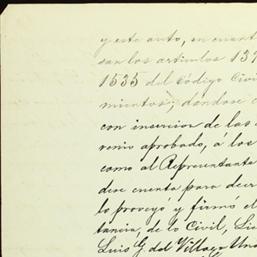 y este auto, en cuanto
san los articulos 139
1535 del Código Civil
mientos; dandose c
con insercion de las
venio aprobado, á los
como al Representante
dese cuenta para decr
lo proveyó y firmó el
tancia, de lo Civil, Lic
Luis G. del Villar